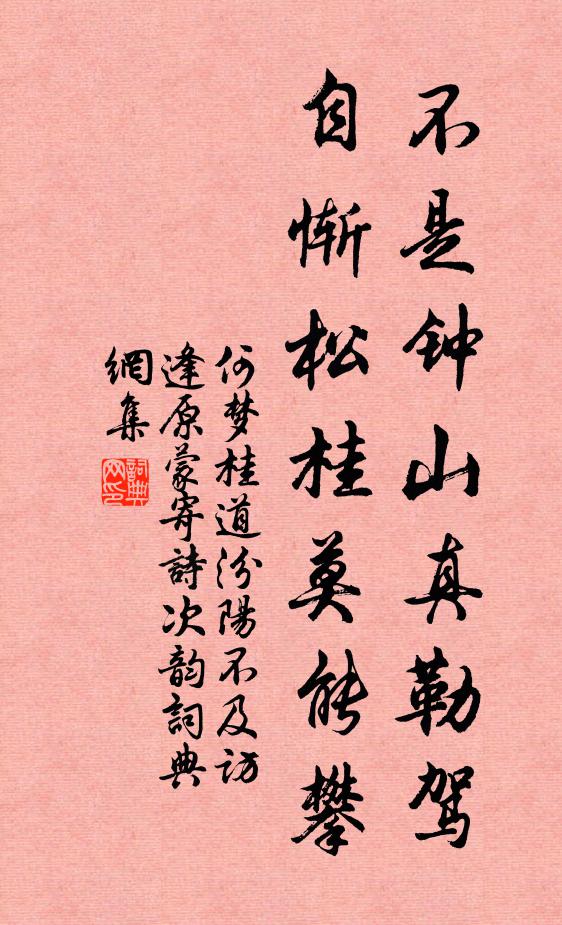 不是钟山真勒驾
自惭松桂莫能攀
何梦桂道汾陽不及访
逢原蒙寄詩次韵詞典
網集
詞典
网印